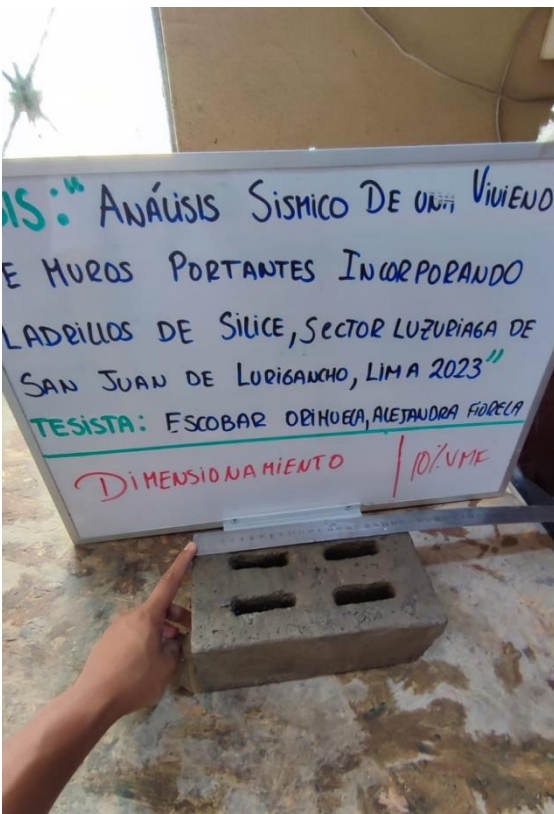 IS: "ANÁLISIS SISMICO DE UNA VIVIEND
E MUROS PORTANTES INCORPORANDO
LADRILLOS DE SILICE, SECTOR LUZURIAGA DE
SAN JUAN DE LURIGANCHO, LIMA 2023"
TESISTA: ESCOBAR ORIHUELA, ALEJANDRA FIORELA
DIMENSIONAMIENTO | 10%